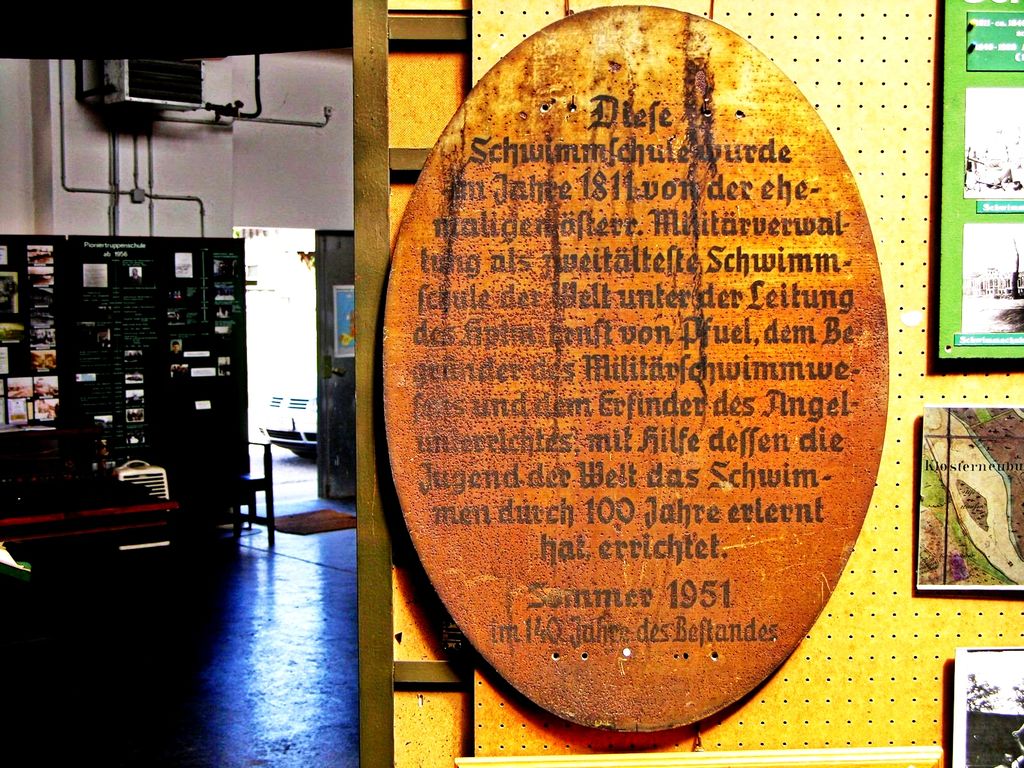 Pioniertruppenschule
ab 1956
Diese
Schwimmschule wurde
im Jahre 1811 von der ehe-
maligen österr. Militärverwal-
tung als zweitälteste Schwimm-
schule der Welt unter der Leitung
des Hptm. Ernst von Pfuel, dem Be
gründer des Militärschwimmwe-
sens und dem Erfinder des Angel-
unterrichtes, mit Hilfe dessen die
Jugend der Welt das Schwim-
men durch 100 Jahre erlernt
hat, errichtet.
Sommer 1951
im 140. Jahre des Bestandes
Klosterneubu